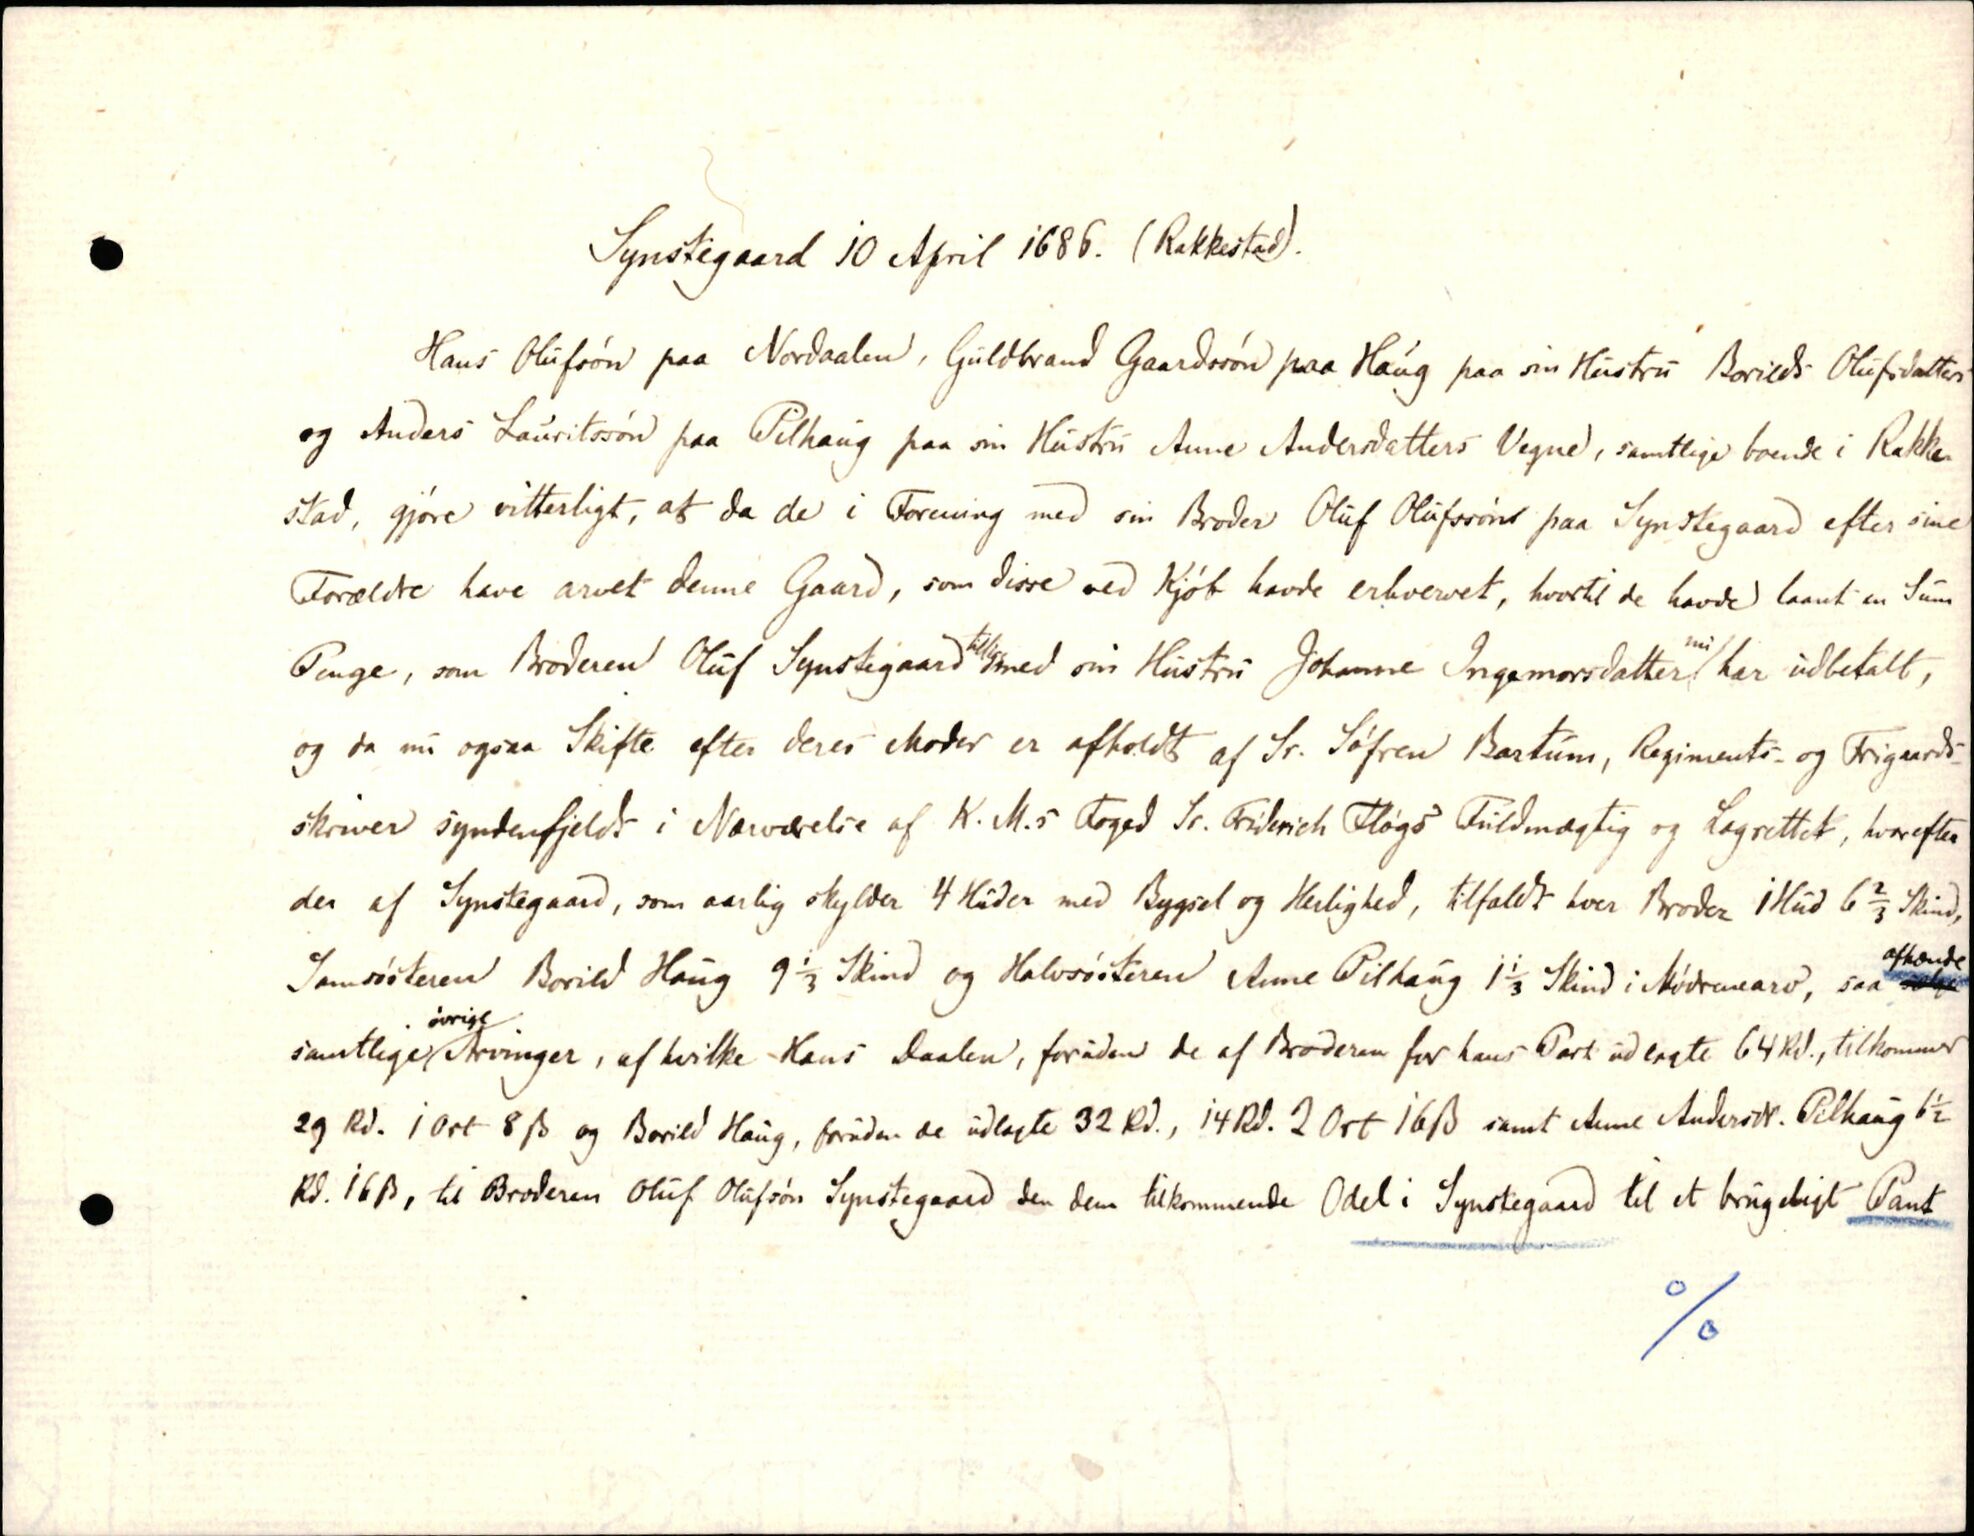 Synstegaard 10 April 1686. (Rakkestad).
Hans Olufsön paa Nordaalen, Guldbrand Gaardssön paa Haug paa sin Hustru Borilds Olufsdatters
og Anders Lauritssön paa Pilhaug paa sin Hustru Anne Andersdatters Vegne, samtlige boende i Rakke-
stad, gjöre vitterligt, at da de i Forening med sin Broder Oluf Olufssöns paa Synstegaard efter sine
Forældre have arvet denne Gaard, som disse ved Kjöb havde erhvervet, hvortil de havde laant en Sum
Penge, som Broderen Oluf Synstegaard tillige med sin Hustru Johanne Ingemorsdatter nu har udbetalt,
og da nu ogsaa Skifte efter deres Moder er afholdt af Sr. Söfren Bartum, Regiments- og Frigaards-
skriver syndenfjelds i Nærværelse af K. M.s Foged Sr. Friderich Flögs Fuldmægtig og Lagrettet, hvorefter
der af Synstegaard, som aarlig skylder 4 Huder med Bygsel og Herlighed, tilfaldt hver Broder 1 Hud 6 2/3 Skind,
Samsösteren Borild Haug 9 1/3 Skind og Halvsösteren Anne Pilhaug 1 1/3 Skind i Mödrenearv, saa afhænde
samtlige övrige Arvinger, af hvilke Hans Daalen, foruden de af Broderen for hans Part udlagte 64 Rd., tilkommer
29 Rd. 1 Ort 8 ß og Borild Haug, foruden de udlagte 32 Rd., 14 Rd. 2 Ort 16 ß samt Anne Andersdr. Pilhaug 6 1/2
Rd. 16 ß, til Broderen Oluf Olufsön Synstegaard den dem tilkommende Odel i Synstegaard til et brugeligt Pant
%